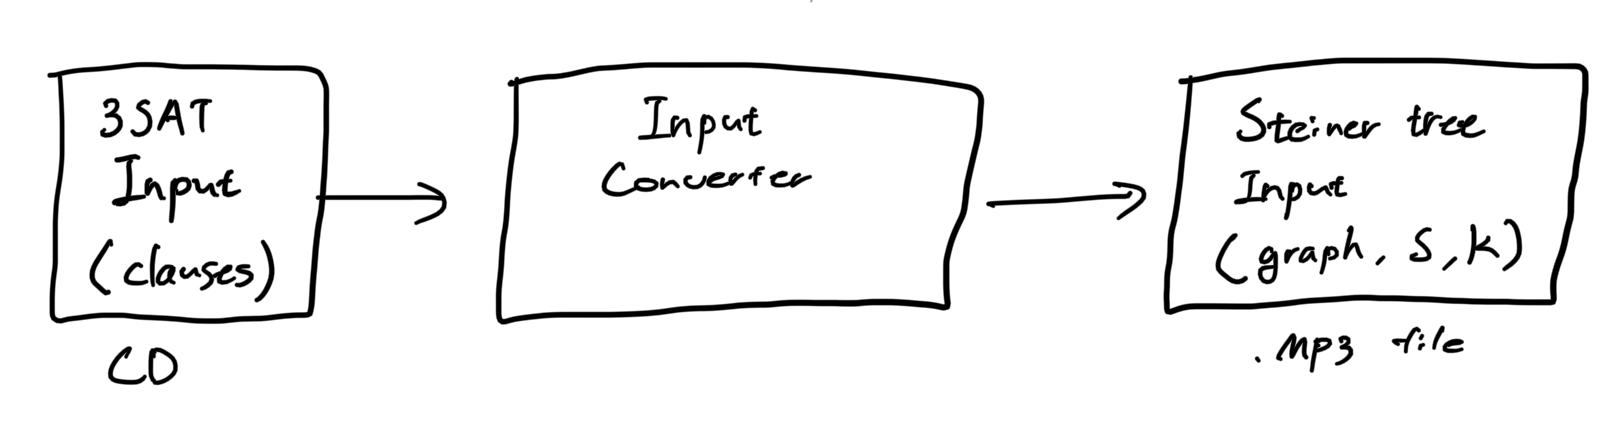 3SAT
Input
(clauses)
CD
Input
Converter
Steiner tree
Input
(graph, S, k)
.mp3 file